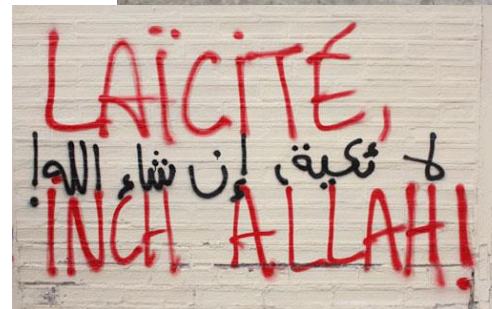 LAÏCITÉ,
لا ئكية، إن شاء الله!
INCH ALLAH!